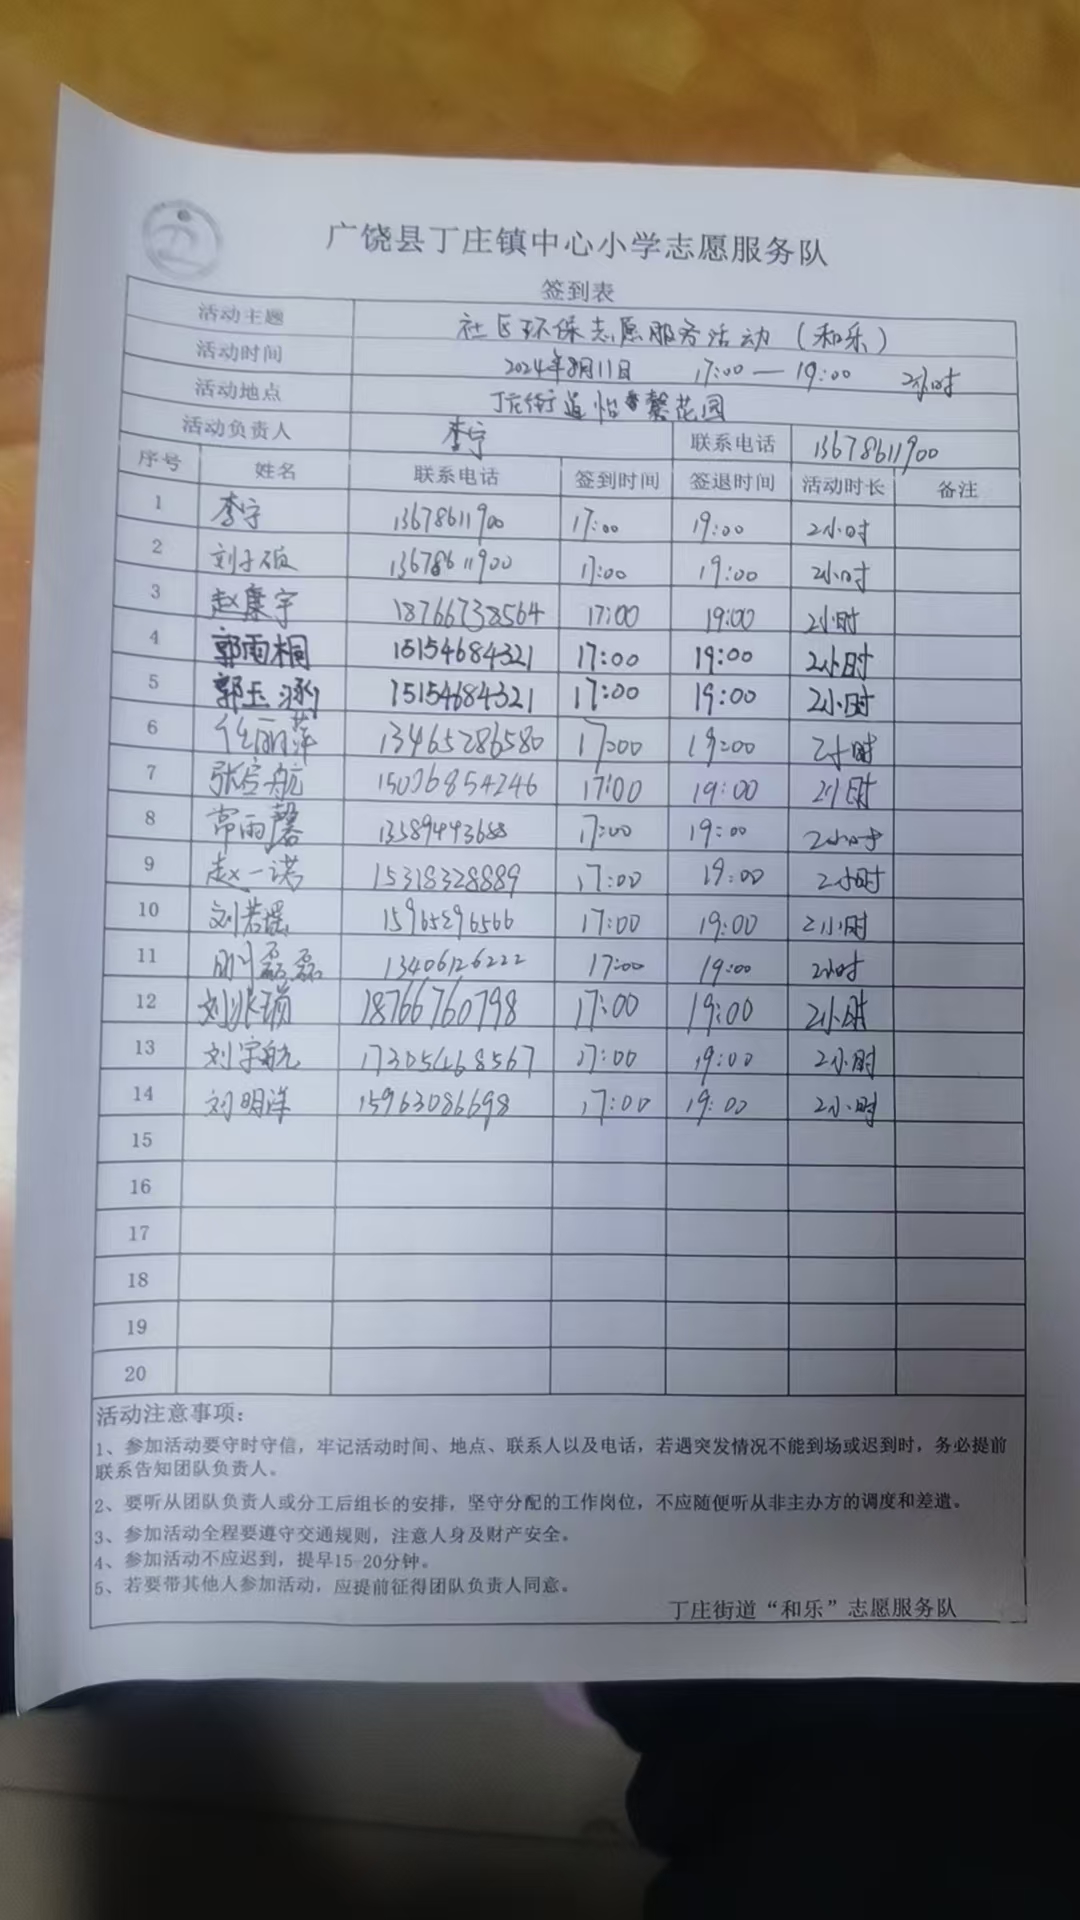 广饶县丁庄镇中心小学志愿服务队
签到表
活动主题 社区环保志愿服务活动（和乐）
活动时间 2024年8月11日 17:00—19:00 2小时
活动地点 丁庄街道怡馨花园
活动负责人 李宁 联系电话 13678611900
序号 姓名 联系电话 签到时间 签退时间 活动时长 备注
1 李宁 13678611900 17:00 19:00 2小时
2 刘子硕 13678611900 17:00 19:00 2小时
3 赵康宇 18766738564 17:00 19:00 2小时
4 郭雨桐 15154684321 17:00 19:00 2小时
5 郭玉涵 15154684321 17:00 19:00 2小时
6 任丽萍 13465286580 17:00 19:00 2小时
7 张宇航 15026854246 17:00 19:00 2小时
8 常雨馨 13589443688 17:00 19:00 2小时
9 赵一诺 15318328889 17:00 19:00 2小时
10 刘若瑶 15965296566 17:00 19:00 2小时
11 磊磊 13406126222 17:00 19:00 2小时
12 刘 18766760798 17:00 19:00 2小时
13 刘宇航 17305468567 17:00 19:00 2小时
14 刘明洋 15963086698 17:00 19:00 2小时
15
16
17
18
19
20
活动注意事项：
1、参加活动要守时守信，牢记活动时间、地点、联系人以及电话，若遇突发情况不能到场或迟到时，务必提前
联系告知团队负责人。
2、要听从团队负责人或分工后组长的安排，坚守分配的工作岗位，不应随便听从非主办方的调度和差遣。
3、参加活动全程要遵守交通规则，注意人身及财产安全。
4、参加活动不应迟到，提早15-20分钟。
5、若要带其他人参加活动，应提前征得团队负责人同意。
丁庄街道“和乐”志愿服务队